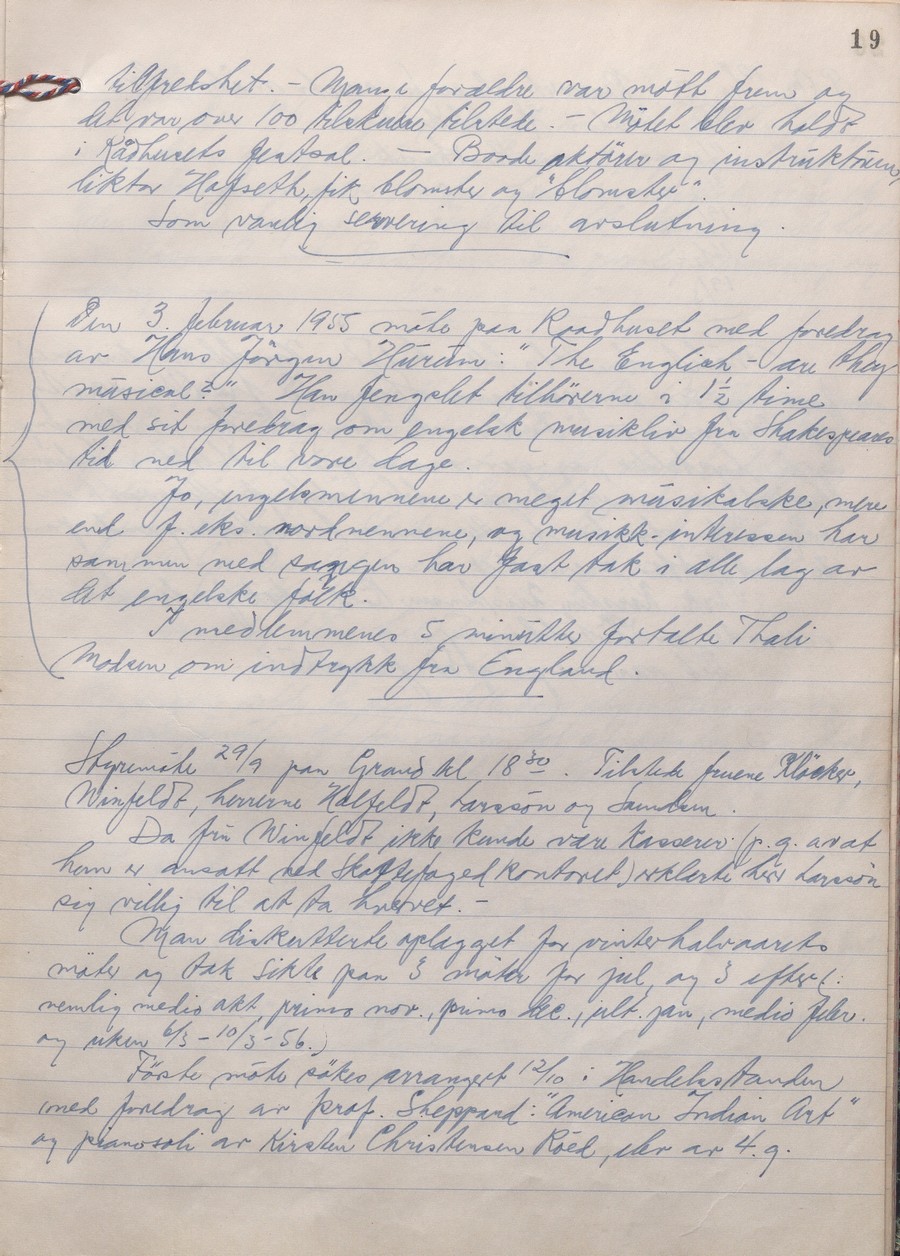 19
tilfredshet. – Mange forældre var møtt frem og
det var over 100 tilskuere tilstede. – Møtet blev holdt
i Rådhusets festsal. – Baade aktører og instruktøren,
lektor Hafseth, fik blomster og "blomster".
Som vanlig servering til avslutning.
Den 3. februar 1955 møte paa Raadhuset med foredrag
av Hans Jörgen Hurum: "The English – are they
musical?" Han fengslet tilhörerne i 1½ time
med sit foredrag om engelsk musikliv fra Shakespeares
tid ned til vore dage.
Jo, engelsmennene er meget musikalske, mere
end f. eks. nordmennene, og musikk-interessen har
sammen med sangen har fast tak i alle lag av
det engelske folk.
I medlemmenes 5 minutter fortalte Thali
Madsen om indtrykk fra England.
Styremøte 29/9 paa Grand kl 18³⁰. Tilstede fruene Klöcker,
Winfeldt, herrerne Halfeldt, Larssön og Samlsen.
Da fru Winfeldt ikke kunde være kasserer (p. g. av at
hun er ansatt ved Skattefogedkontoret) erklærte herr Larssön
sig villig til at ta hvervet. –
Man diskutterte oplegget for vinterhalvaarets
möter og tok sikte paa 3 möter för jul, og 3 efter (:
nemlig medio okt, primo nov., primo dec., ult. jan, medio febr.
og uken 6/3 – 10/3 – 56.)
Förste möte sökes arrangert 12/10 i Handelsstanden
med foredrag av Prof. Sheppard: "American Indian Art"
og pianosoli av Kirsten Christensen Röed, elev av 4. g.